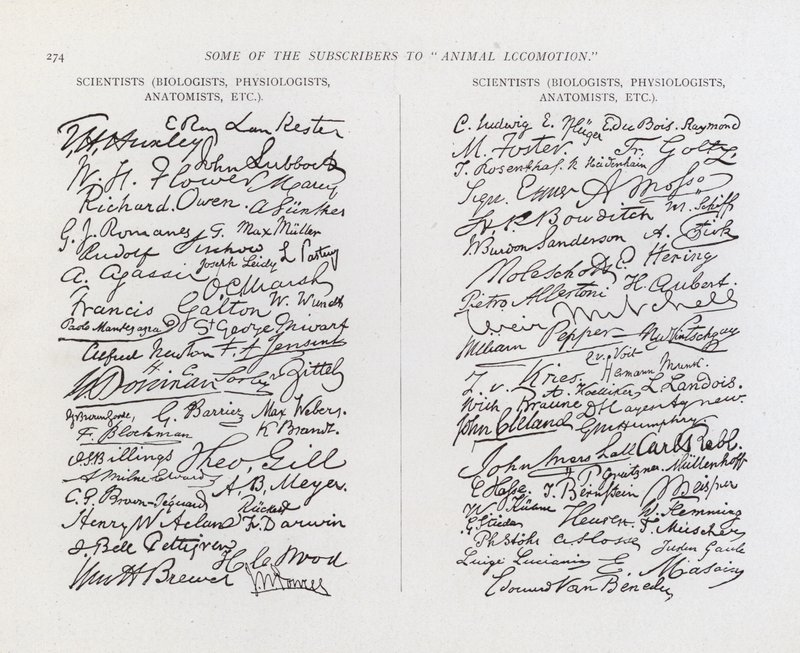 274
SOME OF THE SUBSCRIBERS TO "ANIMAL LCCOMOTION."
SCIENTISTS (BIOLOGISTS, PHYSIOLOGISTS,
ANATOMISTS, ETC.).
E Ray Lankester
T. H. Huxley
John Lubbock
W. H. Flower Marey
Richard. Owen. A Günther
G. J. Romanes G. Max Müller
Rudolf Virchow L Pasteur
Joseph Leidy
A. Agassiz
O. C. Marsh
Francis Galton W. Wundt
Paolo Mantegazza St George Mivart
Alfred Newton
H. C. Sorby v Zittel
G. Barrier Max Weber.
F. Blochman K Brandt.
J. S. Billings Theo. Gill
A Milne Edwards A. B. Meyer.
C. E. Brown-Séquard Rückert
Henry W Acland F. Darwin
J. Bell Pettigrew
H. C. Wood
Wm H Brewer
SCIENTISTS (BIOLOGISTS, PHYSIOLOGISTS,
ANATOMISTS, ETC.).
C. Ludwig E. Pflüger E. du Bois-Raymond
M. Foster. Fr. Goltz.
J. Rosenthal. R Heidenhain
Sigm. Exner A Mosso
H. P. Bowditch M. Schiff
J. Burdon Sanderson A. Fick
Moleschott E. Hering
Pietro Albertoni H. Aubert.
Weir Mitchell
William Pepper
v. Voit
J. v. Kries. Hermann Munk.
A. Koelliker L Landois.
Wilh Braune
John Cleland G M Humphry
John Marshall Carl Rabl.
P. Grützner Müllenhoff
C Hasse. J. Bernstein
W. Kühne Hensen W. Flemming
L Stieda F. Miescher
Ph Stöhr Justus Gaule
Luigi Luciani
Edouard Van Beneden